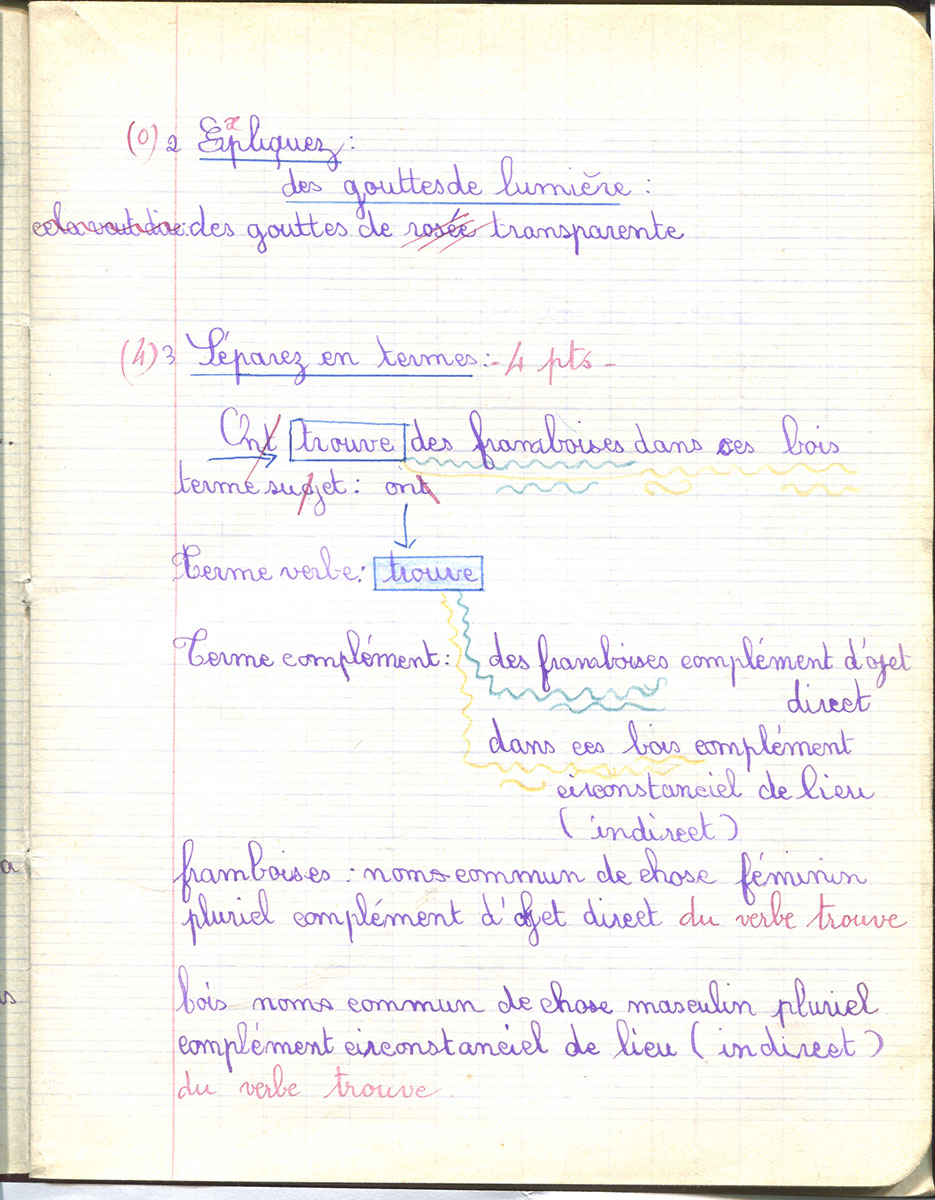 (0) 2 Expliquez :
des gouttes de lumière :
cela veut dire : des gouttes de rosée transparente
(4) 3 Séparez en termes : - 4 pts -
Ont trouve des framboises dans ces bois
terme sujet : ont
Terme verbe : trouve
Terme complément : des framboises complément d'ojet
direct
dans ces bois complément
circonstanciel de lieu
(indirect)
a
framboises : noms commun de chose féminin
pluriel complément d'ojet direct du verbe trouve
s
bois noms commun de chose masculin pluriel
complément circonstanciel de lieu (indirect)
du verbe trouve